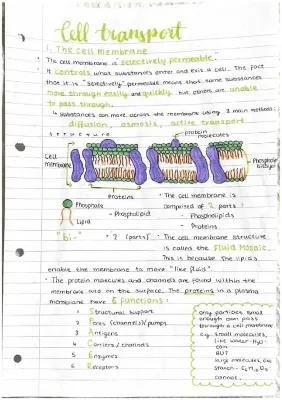 Cell transport
1. The cell membrane
The cell membrane is "selectively permeable".
It controls what substances enter and exit a cell. This fact
that it is "selectively" permeable means that some substances
move through easily and quickly but others are unable
to pass through.
substances can move across the membrane using 3 main methods:
diffusion, osmosis, active transport
structure
protein
molecules
Cell
membrane
Phospholipid
bilayer
Proteins
Phosphate
- Phospholipid
Lipid
• The cell membrane is
comprised of 2 parts:
- Phospholipids
- Proteins
"bi-" • 2 (parts)
• The cell membrane structure
is called the Fluid Mosaic.
This is because the lipids
enable the membrane to move "like fluid".
• The protein molecules and channels are found within the
membrane and on the surface. The proteins in a plasma
membrane have 6 functions:
1 Structural Support
2 Pores (channels)/pumps
3 Antigens
4 Carriers/channels
5 Enzymes
6 Receptors
only particles small
enough can pass
through a cell membrane
e.g. small molecules,
like water - H₂O -
can
BUT
large molecules, like
starch -
cannot.